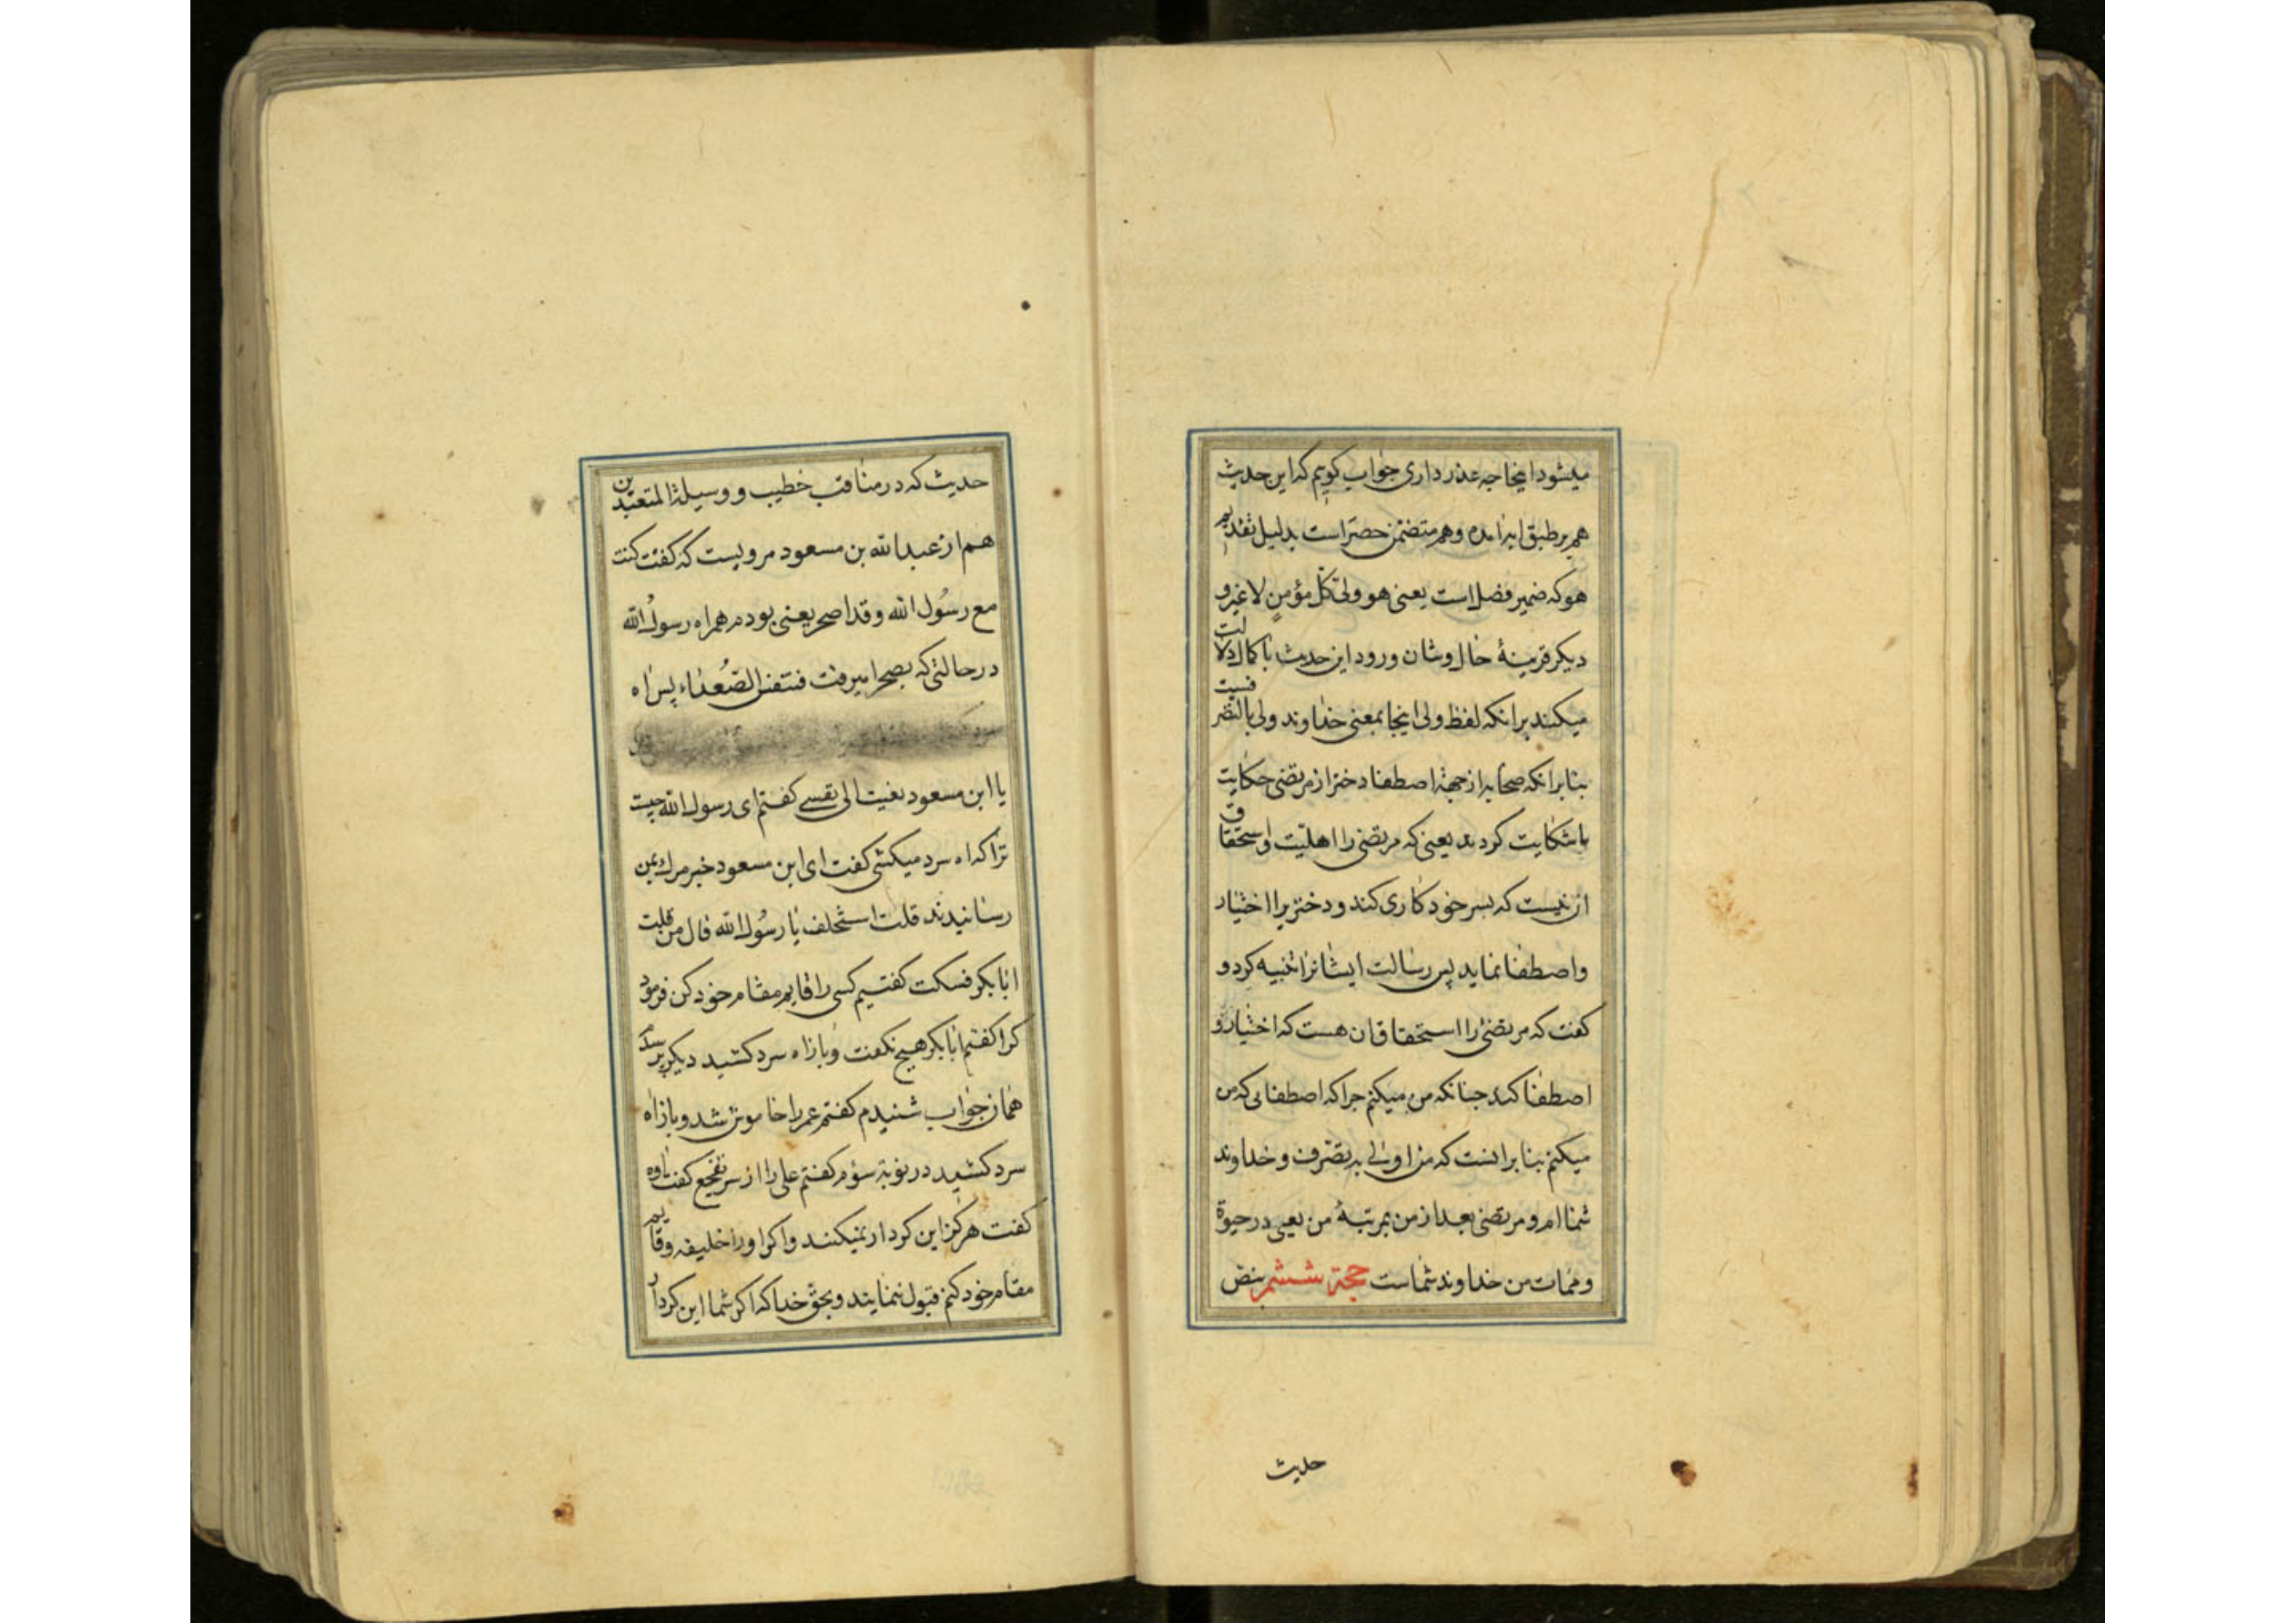 میشود اینجا جه عذر داری جواب کویم که این حدیث
هم بر طبق ایه امده وهم متضمن حصر است بدلیل تقدیم
هو که ضمیر فصل است یعنی هو ولی کل مؤمن لا غیر و
دیکر قرینهٔ حال وشان ورود این حدیث با کمال دلالت
میکند برانکه لفظ ولی اینجا بمعنی خداوند ولی بالتصر فسیت
بنابرانکه صحابه از جهة اصطفا دختر از مرتضی حکایت
باشکایت کردند یعنی که مرتضی را اهلیت واستحقاق
ان نیست که بسر خود کاری کند و دختریرا اختیار
واصطفا نماید پس رسالت ایشانرا تنبیه کرد و
کفت که مرتضی را استحقاق ان هست که اختیار و
اصطفا کند جنانکه من میکنم جرا که اصطفایی که من
میکنم بنابرانست که من اولی به تصرف و خداوند
شما ام و مرتضی بعد از من بمرتبهٔ من یعنی در حیوة
وممات من خداوند شماست حجة ششم بنص
حدیث
حدیث که در مناقب خطیب و وسیلة المتعبدین
هم از عبدالله بن مسعود مرویست که کفت کنت
مع رسول الله وقد اصحر یعنی بودم همراه رسول الله
در حالتی که بصحرا میرفت فتنفس الصعداء پس اه
سرد
یا ابن مسعود نعیت الی نفسی کفتم ای رسول الله جیست
ترا که اه سرد میکشی کفت ای ابن مسعود خبر مرك بمن
رسانیدند قلت استخلف یا رسول الله قال من قلت
ابا بکر فسکت کفتیم کسی را قایم مقام خود کن فرمود
کرا کفتم ابا بکر هیج نکفت وباز اه سرد کشید دیکر پرسیدم
همان جواب شنیدم کفتم عمر را خاموش شد وباز اه
سرد کشید در نوبة سؤم کفتم علی را از سر تفجع کفت اوه
کفت هرکز این کردار نمیکنند واکر اورا خلیفه وقایم
مقام خود کنم قبول ننمایند وبحق خدا که اکر شما این کردار